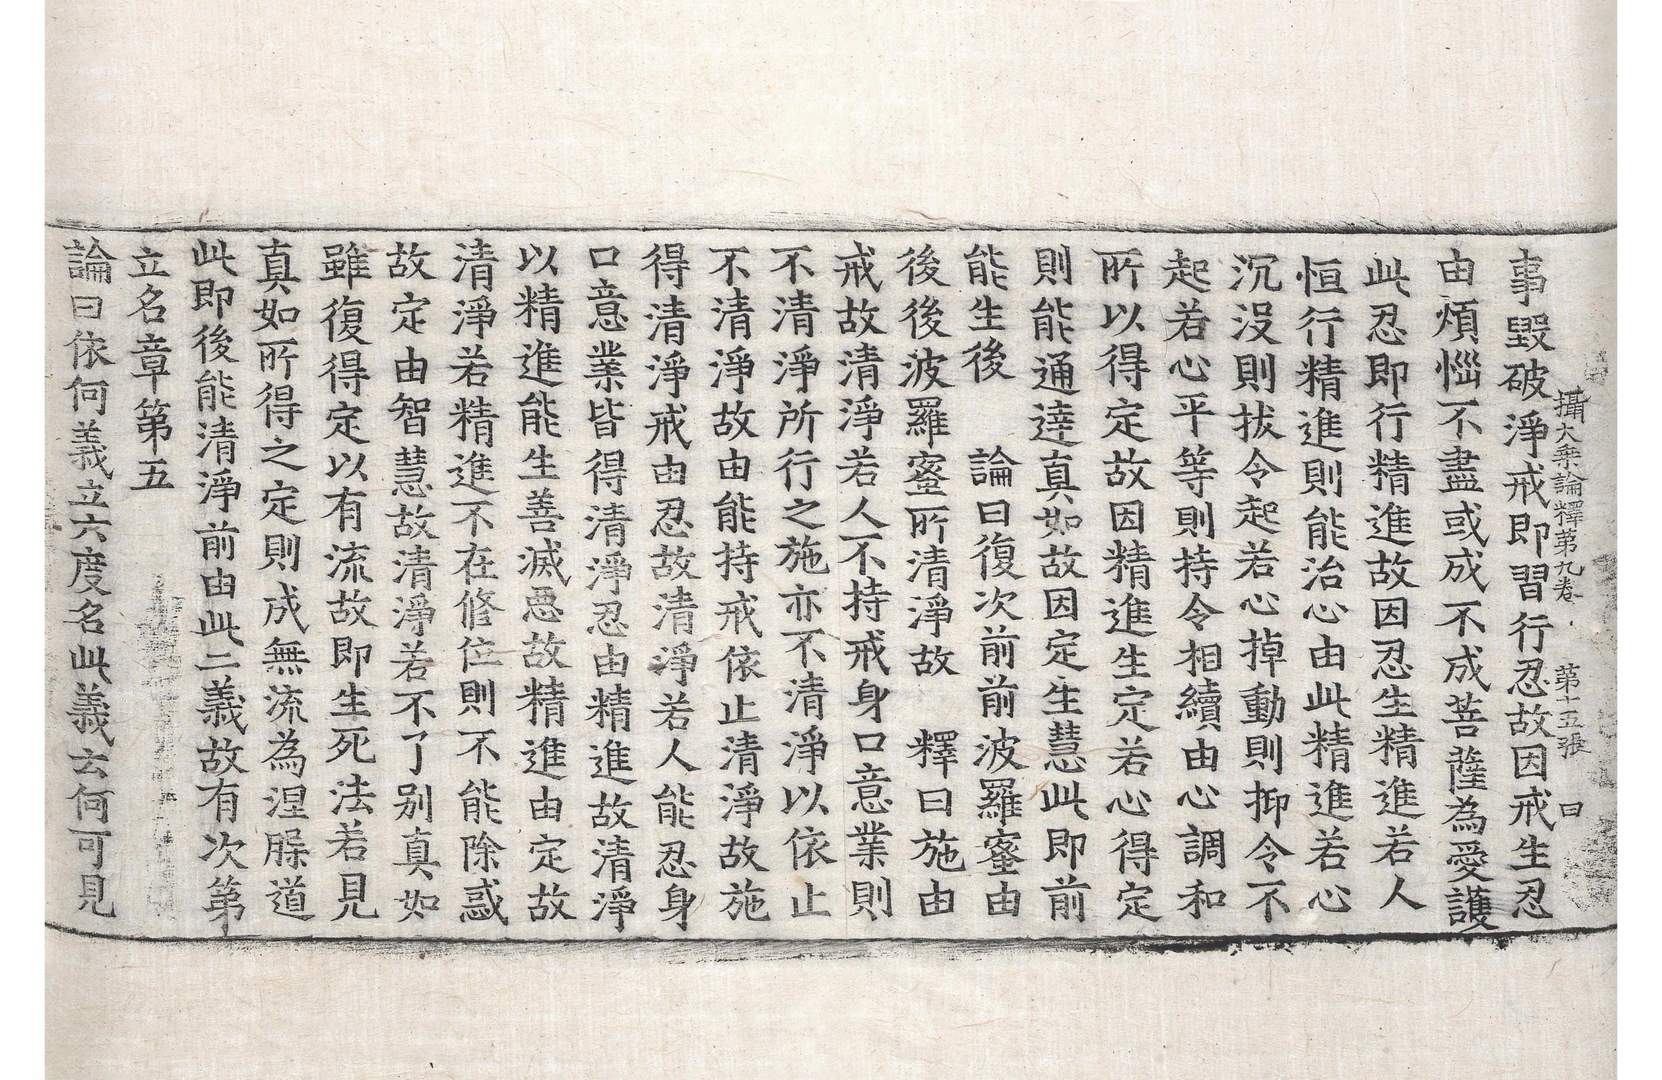 攝大乗論釋第九卷 第十五張 曰
事毀破淨戒即習行忍故因戒生忍
由煩惱不盡或成不成菩薩為愛護
此忍即行精進故因忍生精進若人
恒行精進則能治心由此精進若心
沉没則拔令起若心掉動則抑令不
起若心平等則持令相續由心調和
所以得定故因精進生定若心得定
則能通達真如故因定生慧此即前
能生後 論曰復次前前波羅蜜由
後後波羅蜜所清淨故 釋曰施由
戒故清淨若人不持戒身口意業則
不清淨所行之施亦不清淨以依止
不清淨故由能持戒依止清淨故施
得清淨戒由忍故清淨若人能忍身
口意業皆得清淨忍由精進故清淨
以精進能生善滅惡故精進由定故
清淨若精進不在修位則不能除惑
故定由智慧故清淨若不了別真如
雖復得定以有流故即生死法若見
真如所得之定則成無流為涅槃道
此即後能清淨前由此二義故有次第
立名章第五
論曰依何義立六度名此義云何可見